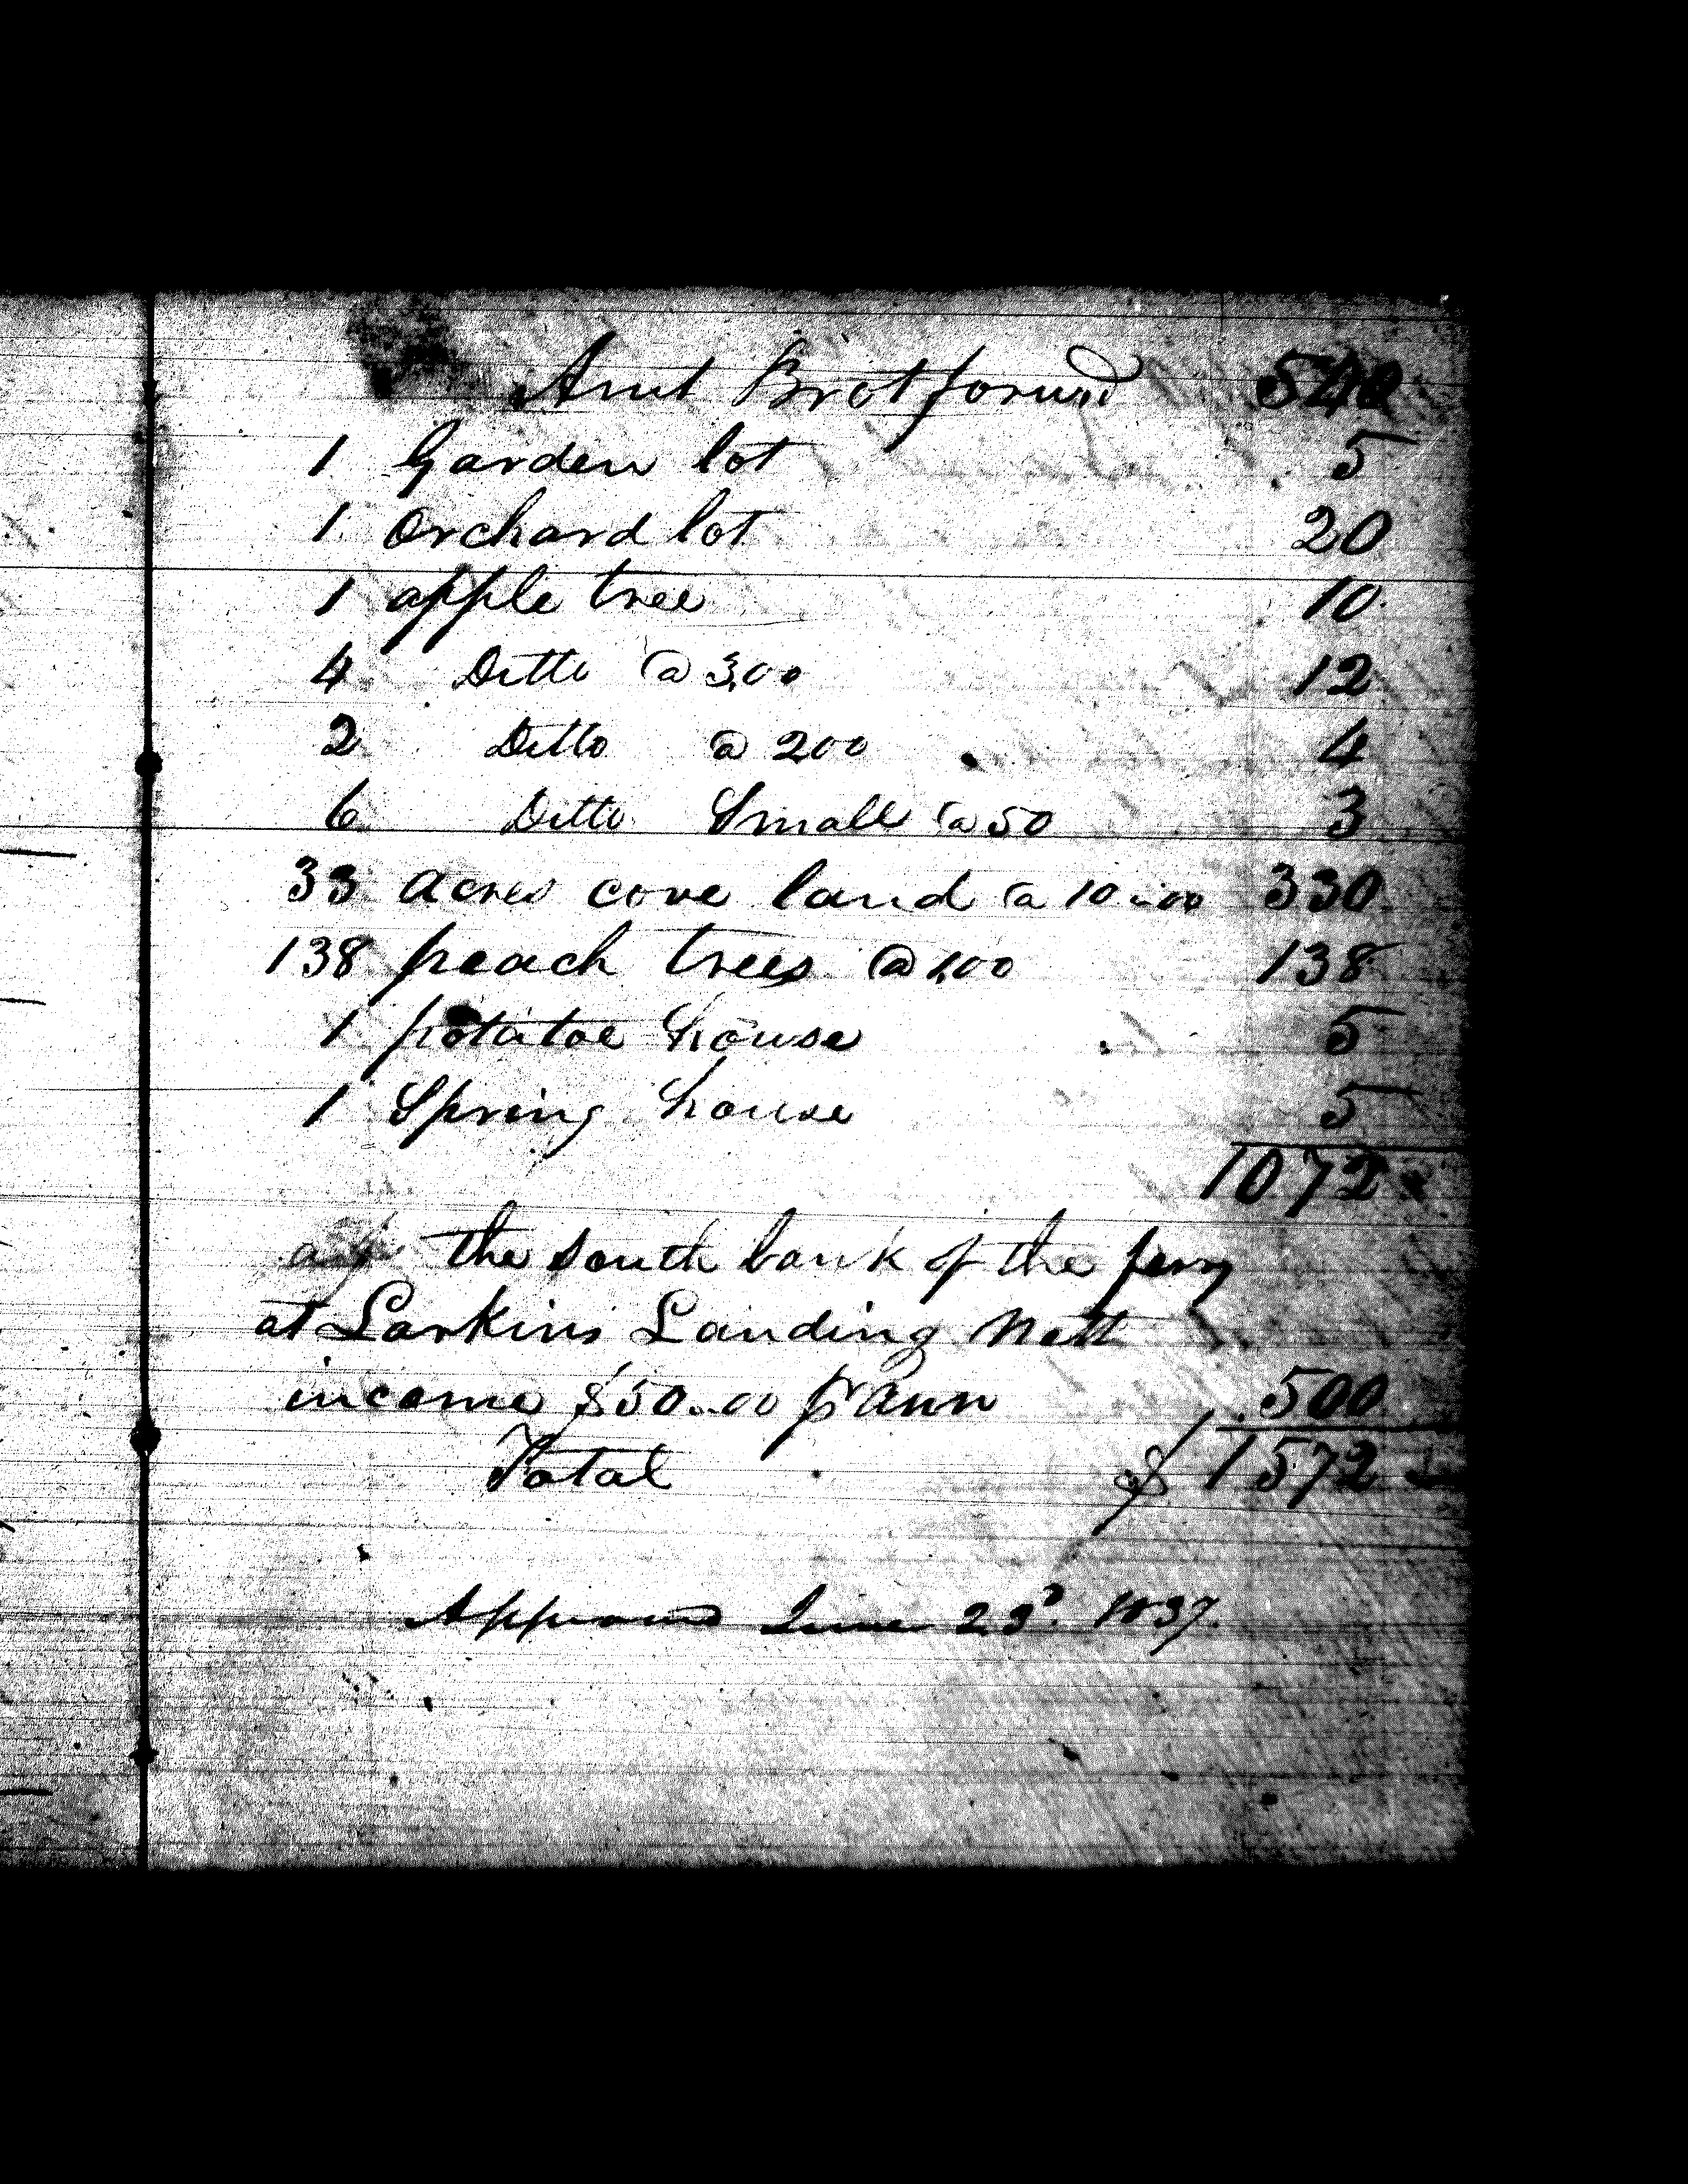 Amt Brot forwd 540
1 Garden lot 5
1 Orchard lot 20
1 apple tree 10
4 Ditto @ 3,00 12
2 Ditto @ 200 4
6 Ditto Small @ 50 3
33 acres cove land @ 10..00 330
138 peach trees @ 1,00 138
1 potatoe house 5
1 Spring house 5
1072
the south bank of the ferry
at Larkins Landing Nett
income $50..00 pr Ann 500
Total $ 1572
Approved June 23d. 1837.